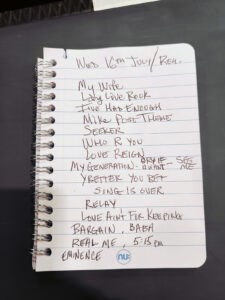 WED 16TH JULY/REH.
My Wife
Lady Live Rock
I've Had Enough
Mike Post Theme
Seeker
Who R You
Love Reign
My Generation - CRY IF YOU WANT - SEE ME
YBETTER YOU BET
SONG IS OVER
RELAY
LOVE AINT FOR KEEPING
BARGAIN, BABA
REAL ME, 5:15 PM
EMINENCE
nu: